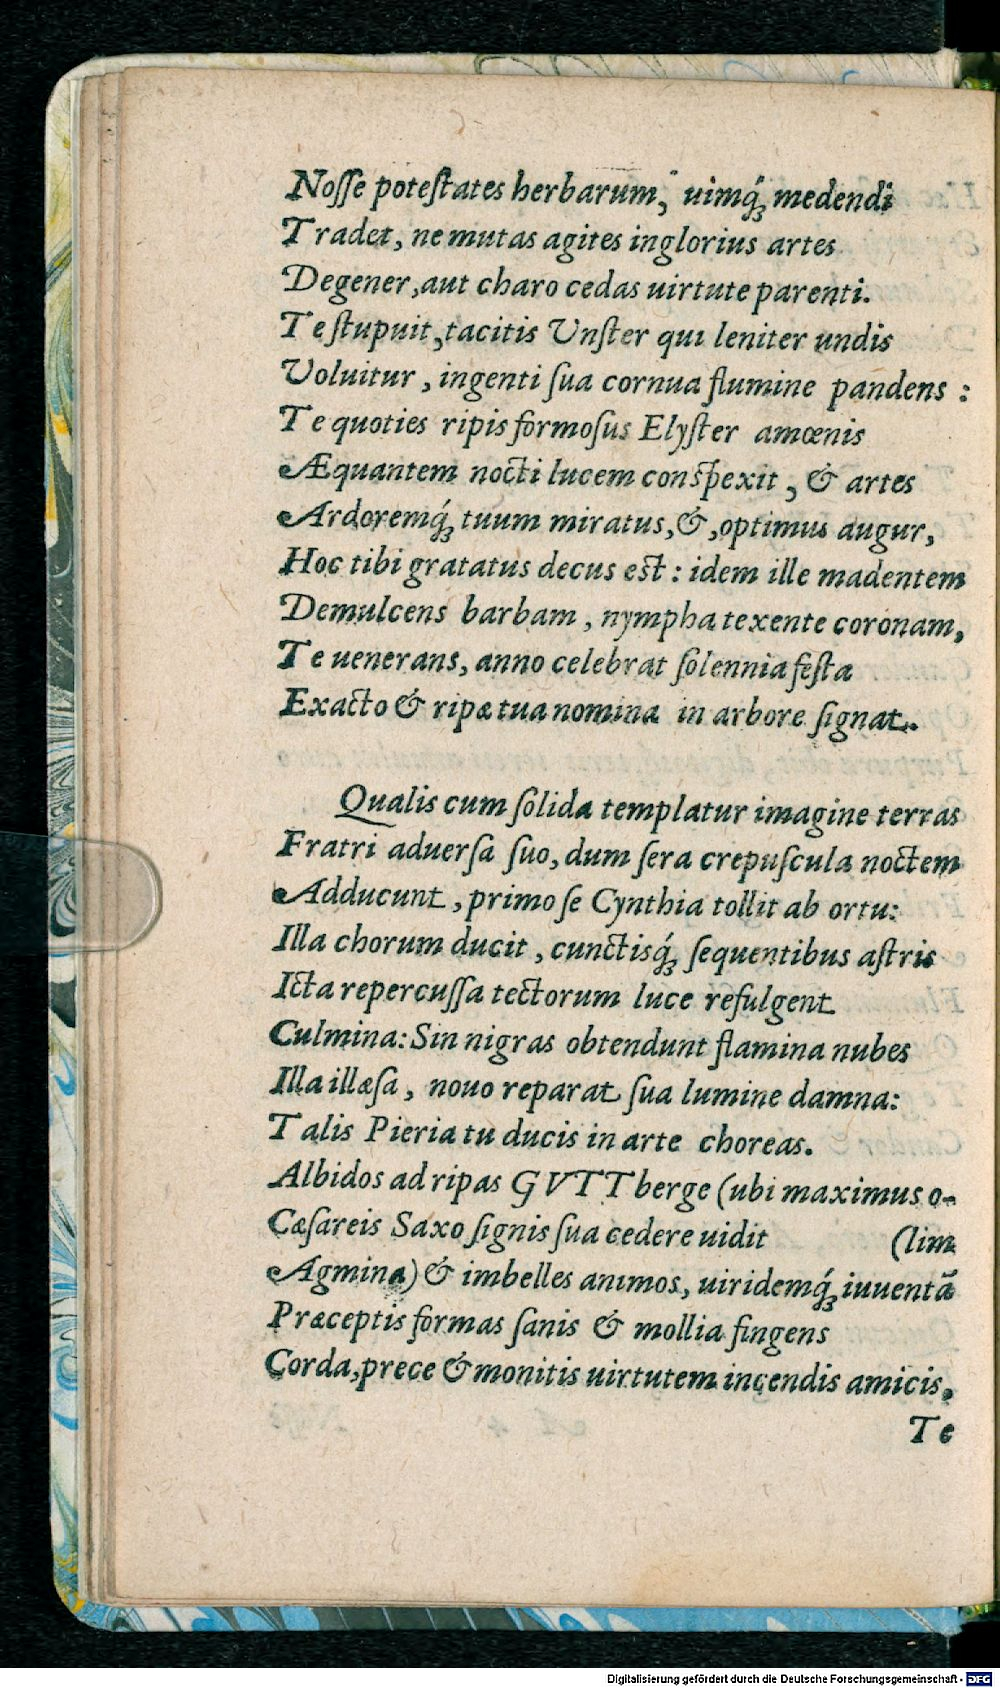 Noſſe poteſtates herbarum, uimq́ꝫ medendi
Tradet, ne mutas agites inglorius artes
Degener, aut charo cedas uirtute parenti.
Te ſtupuit, tacitis Unſter qui leniter undis
Voluitur, ingenti ſua cornua flumine pandens:
Te quoties ripis formoſus Elyſter amœnis
Æquantem nocti lucem conſpexit, & artes
Ardoremq́ꝫ tuum miratus, &, optimus augur,
Hoc tibi gratatus decus eſt: idem ille madentem
Demulcens barbam, nympha texente coronam,
Te uenerans, anno celebrat ſolennia feſta
Exacto & ripæ tua nomina in arbore ſignat.
Qualis cum ſolida templatur imagine terras
Fratri aduerſa ſuo, dum ſera crepuſcula noctem
Adducunt, primo ſe Cynthia tollit ab ortu:
Illa chorum ducit, cunctisq́ꝫ ſequentibus aſtris
Icta repercuſſa tectorum luce refulgent
Culmina: Sin nigras obtendunt flamina nubes
Illa illæſa, nouo reparat ſua lumine damna:
Talis Pieria tu ducis in arte choreas.
Albidos ad ripas GVTTberge (ubi maximus o-
Cæſareis Saxo ſignis ſua cedere uidit (lim
Agmina) & imbelles animos, uiridemq́ꝫ iuuentã
Præceptis formas ſanis & mollia fingens
Corda, prece & monitis uirtutem incendis amicis,
Te
Digitalisierung gefördert durch die Deutsche Forschungsgemeinschaft - DFG